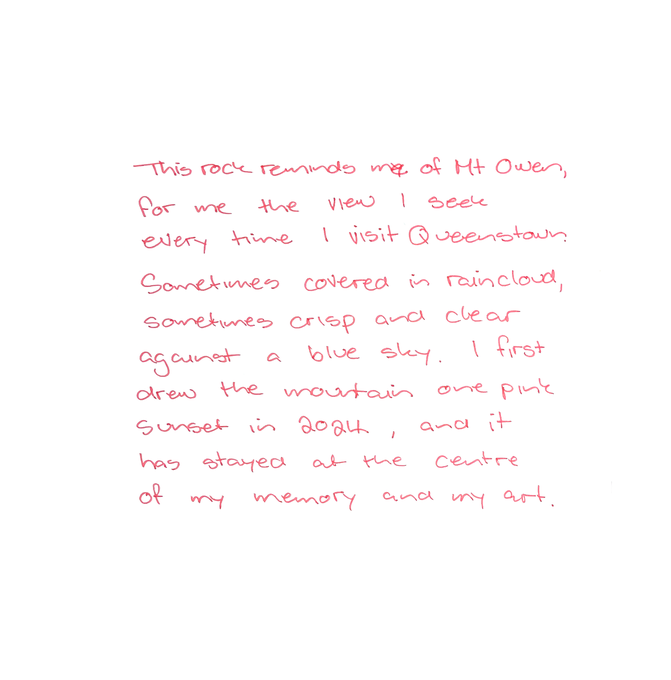 This rock reminds me of Mt Owen,
for me the view I seek
every time I visit Queenstown.
Sometimes covered in raincloud,
sometimes crisp and clear
against a blue sky. I first
drew the mountain one pink
sunset in 2024, and it
has stayed at the centre
of my memory and my art.